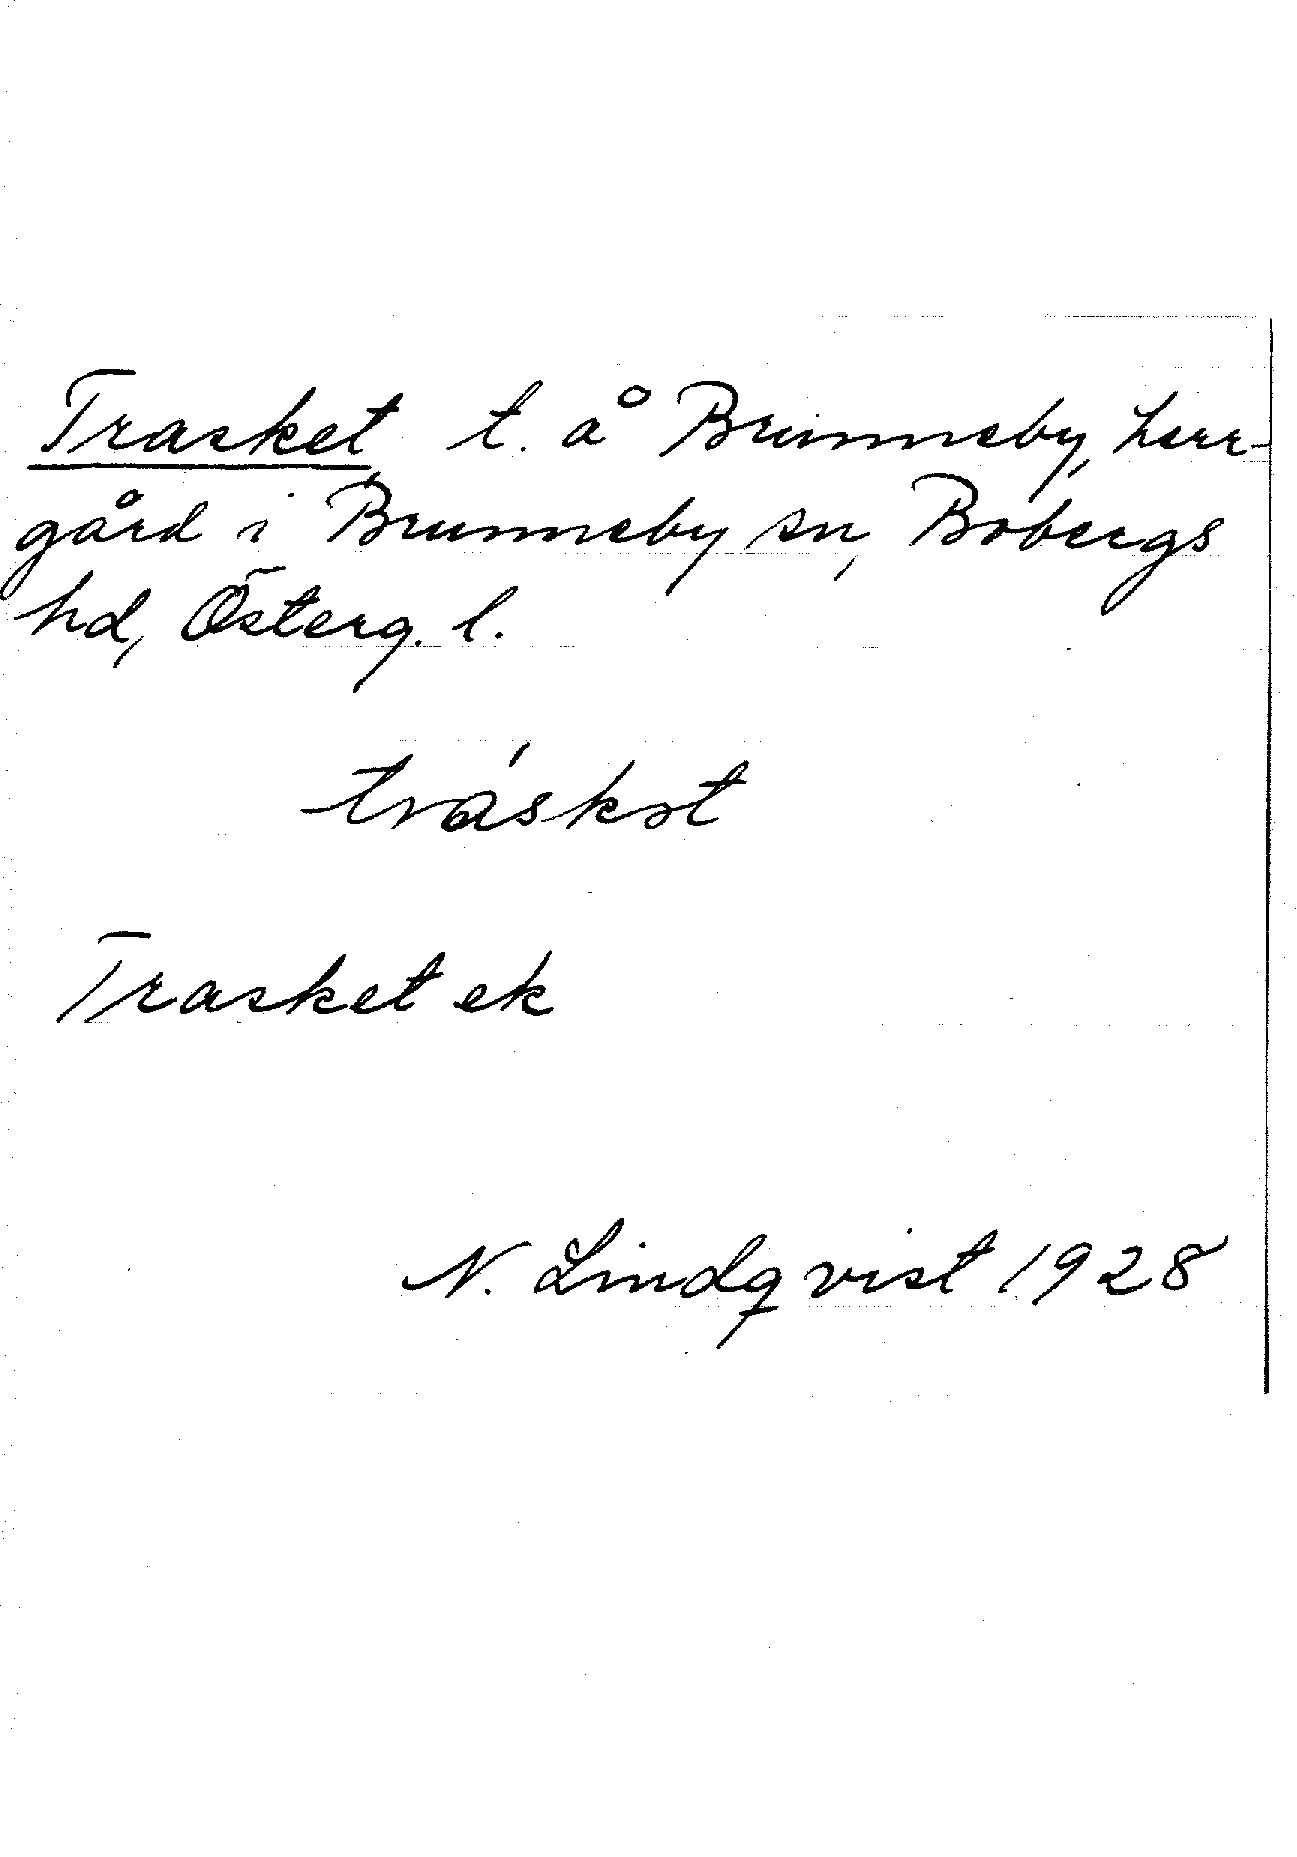 Trasket t. å Brunneby, herr-
gård i Brunneby sn, Bobergs
hd, Österg. l.
tráskət
Trasket ek
N. Lindqvist 1928